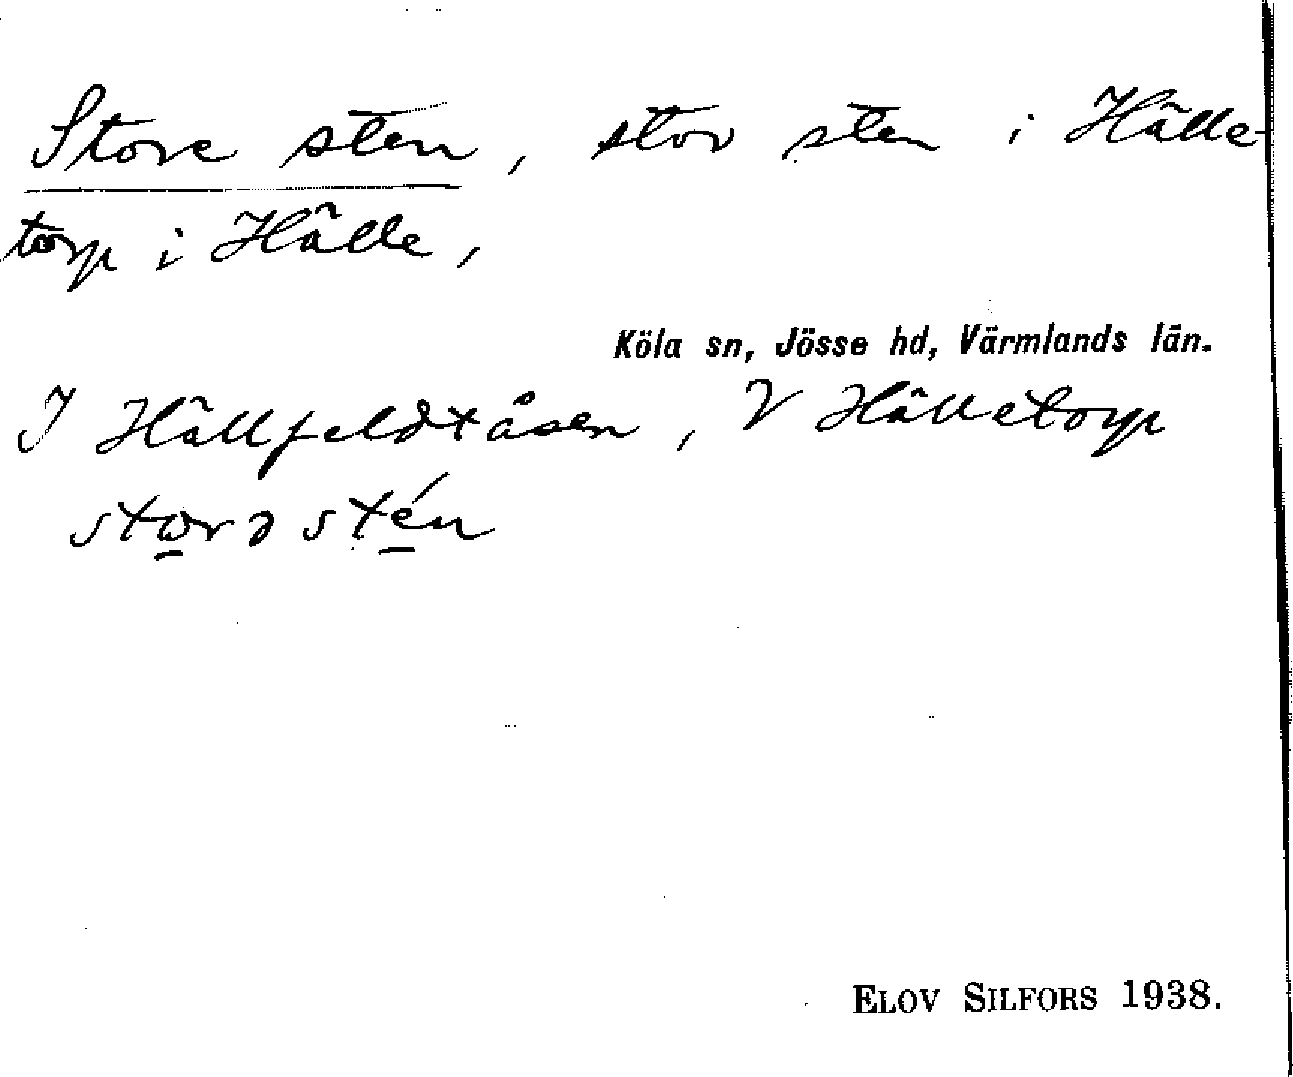 Store sten, stor sten i Hälle-
torp i Hälle,
Köla sn, Jösse hd, Värmlands län.
I Hällfeldtåsen, V Hälletorp
stωrə stén
ELOV SILFORS 1938.